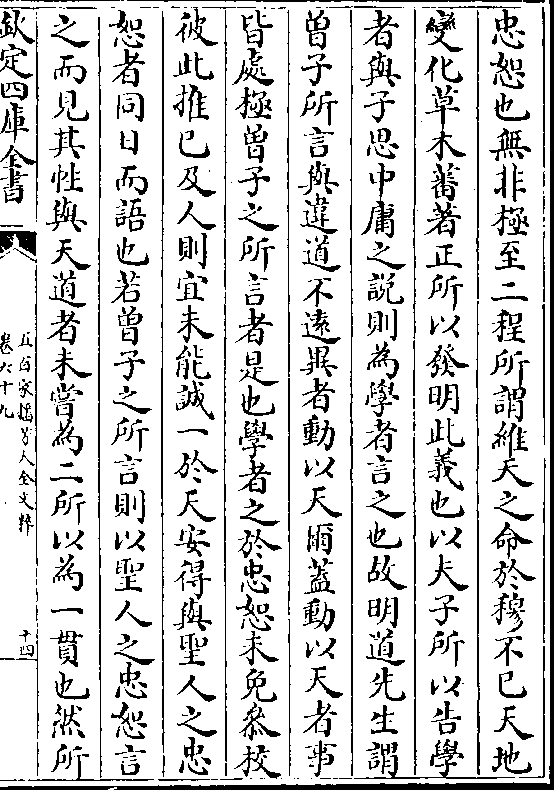 忠恕也無非極至二程所謂維天之命於穆不已天地
變化草木蕃者正所以發明此義也以夫子所以告學
者與子思中庸之說則為學者言之也故明道先生謂
曾子所言與違道不遠異者動以天爾蓋動以天者事
皆處極曾子之所言者是也學者之於忠恕未免參校
彼此推已及人則宜未能誠一於天安得與聖人之忠
恕者同日而語也若曾子之所言則以聖人之忠恕言
之而見其性與天道者未嘗為二所以為一貫也然所
欽定四庫全書
五百家播芳大全文粹
卷六十九
十四